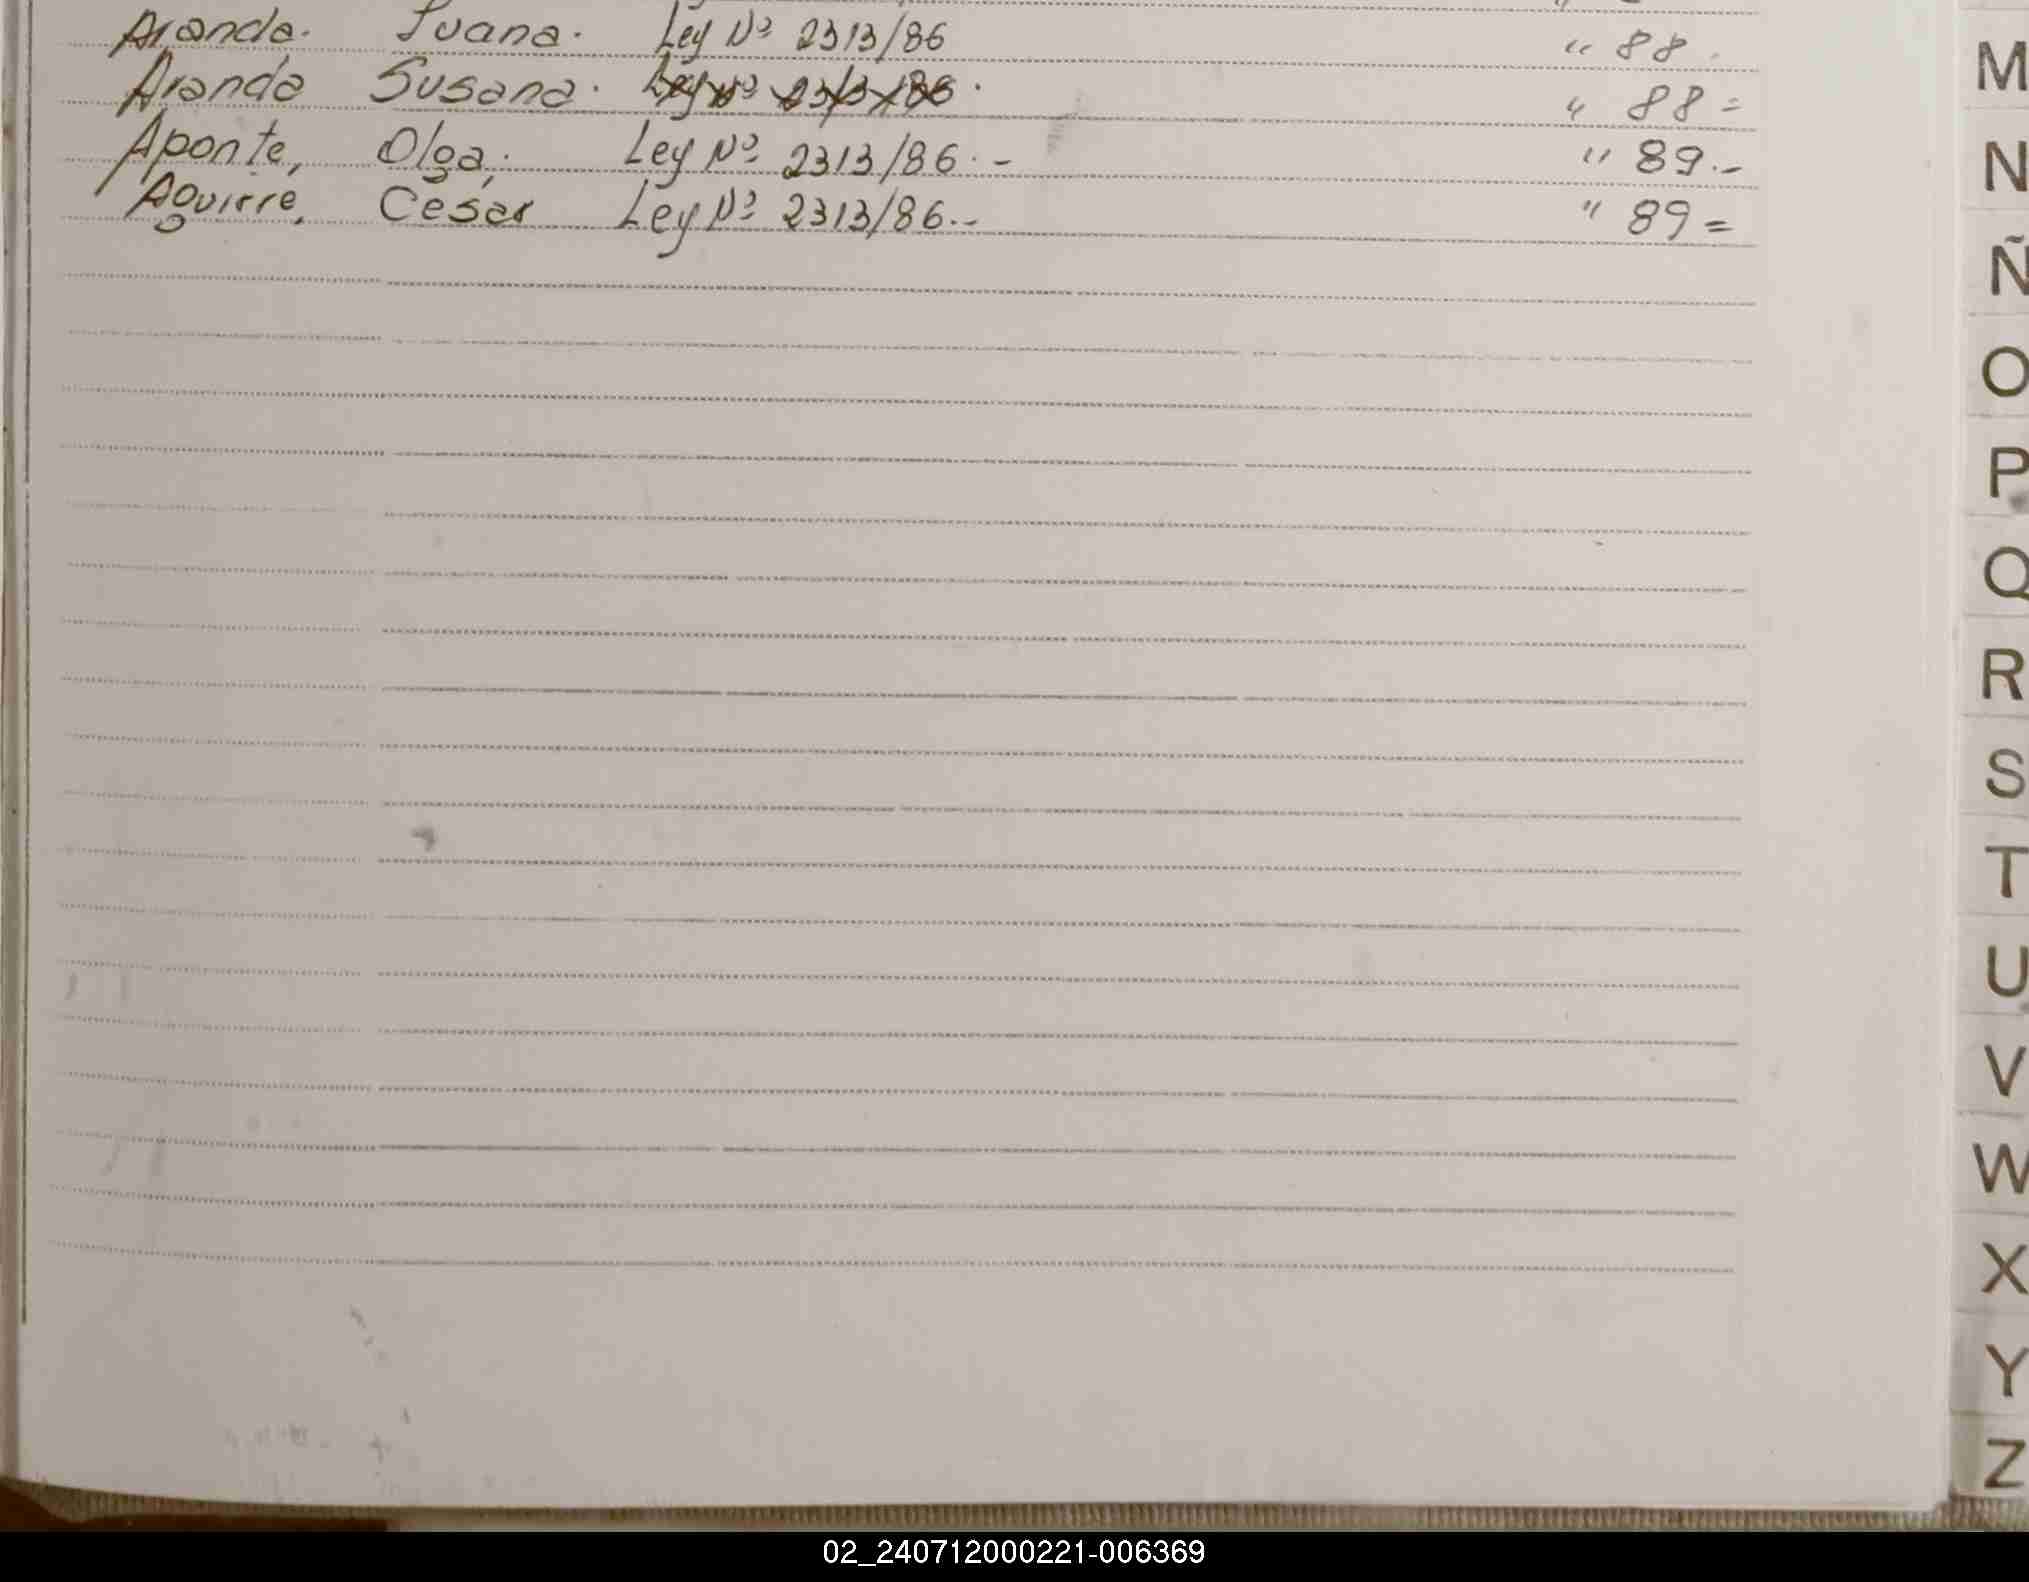 Aranda. Juana. Ley Nº 2313/86 " 88.
Aranda Susana. Ley Nº 2313/86. " 88=
Aponte, Olga. Ley Nº 2313/86.- " 89.-
Aguirre, César Ley Nº 2313/86.- " 89=
M
N
Ñ
O
P
Q
R
S
T
U
V
W
X
Y
Z
02_240712000221-006369